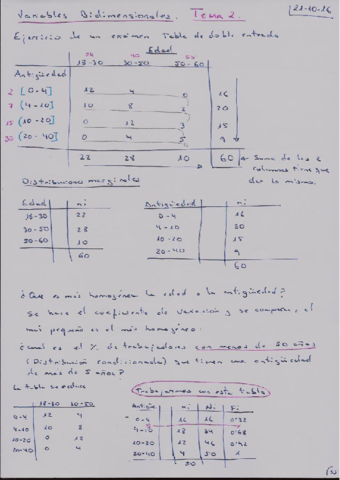 Variables Bidimensionales. Tema 2. 21-10-16
Ejercicio de un exámen Tabla de doble entrada
Edad
24 40 55
18-30 30-50 50-60
Antigüedad
2 [0-4] 12 4 0 16
7 (4-10] 10 8 2 20
15 (10-20] 0 12 3 15
30 (20-40] 0 4 5 9
22 28 10 60 Suma de las
columnas tiene que
dar lo mismo.
Distribuciones marginales
Edad ni
18-30 22
30-50 28
50-60 10
60
Antigüedad ni
0-4 16
4-10 20
10-20 15
20-40 9
60
¿Que es más homogénea la edad o la antigüedad?
Se hace el coeficiente de variación y se compara, el
más pequeño es el más homogéneo.
¿Cual es el % de trabajadores con menos de 50 años
(Distribución condicionada) que tienen una antigüedad
de más de 5 años?
La tabla
18-30 30-50
0-4 12 4
4-10 10 8
10-20 0 12
20-40 0 4
Trabajamos con esta tabla
Antigüe ni Ni Fi
0-4 16 16 0'32
4-10 18 34 0'68
10-20 12 46 0'92
20-40 4 50 1
50